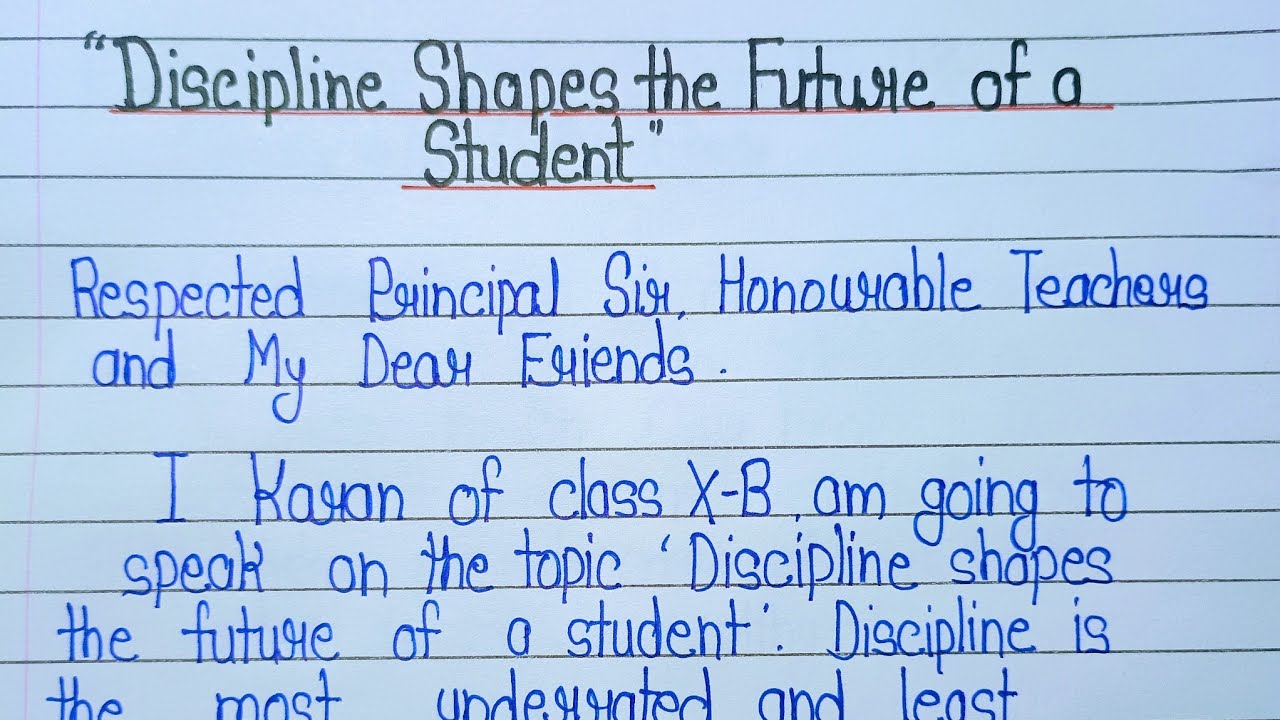 “Discipline Shapes the Future of a
Student”
Respected Principal Sir, Honourable Teachers
and My Dear Friends.
I Karan of class X-B, am going to
speak on the topic ‘Discipline shapes
the future of a student’. Discipline is
the most underrated and least